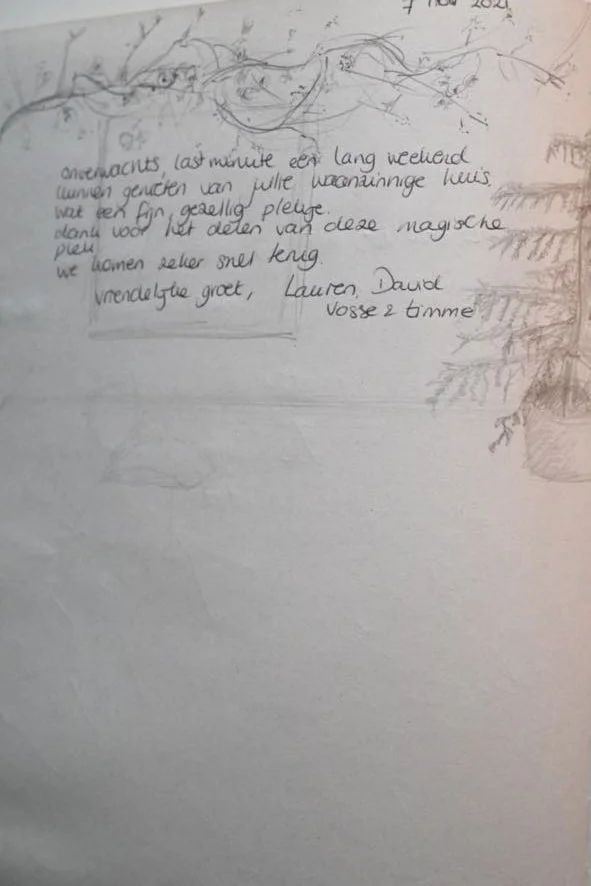 7 nov 2021
onverwachts, lastminute een lang weekend
kunnen genieten van jullie waanzinnige huis.
wat een fijn, gezellig plekje.
dank voor het delen van deze magische
plek
we komen zeker snel terug.
vriendelijke groet, Lauren, David
Vosse & timme